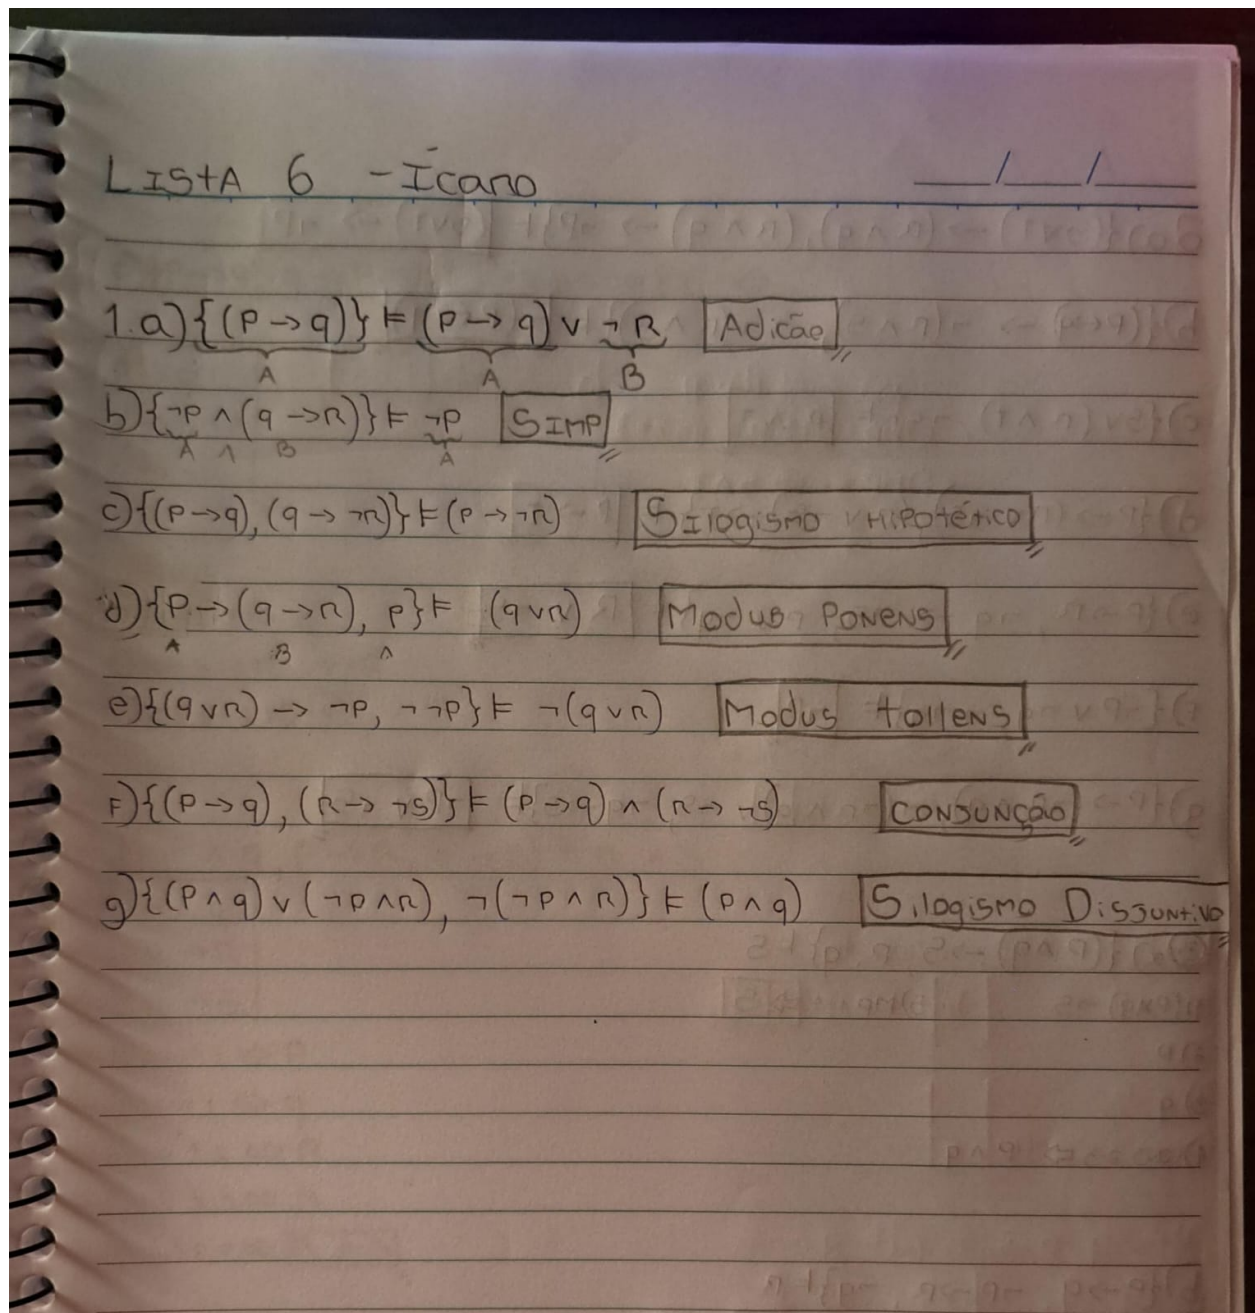 LISTA 6 - Ícaro ___/___/___
1.a) {(P → q)} ⊨ (P → q) ∨ ¬R Adicão
A A B
b) {¬P ∧ (q → R)} ⊨ ¬P SIMP
A ∧ B A
c) {(P → q), (q → ¬R)} ⊨ (P → ¬R) Silogismo Hipotético
d) {P → (q → R), P} ⊨ (q ∨ R) Modus Ponens
A B A
e) {(q ∨ R) → ¬P, ¬¬P} ⊨ ¬(q ∨ R) Modus tollens
F) {(P → q), (R → ¬S)} ⊨ (P → q) ∧ (R → ¬S) CONJUNÇÃO
g) {(P ∧ q) ∨ (¬P ∧ R), ¬(¬P ∧ R)} ⊨ (P ∧ q) Silogismo Disjuntivo